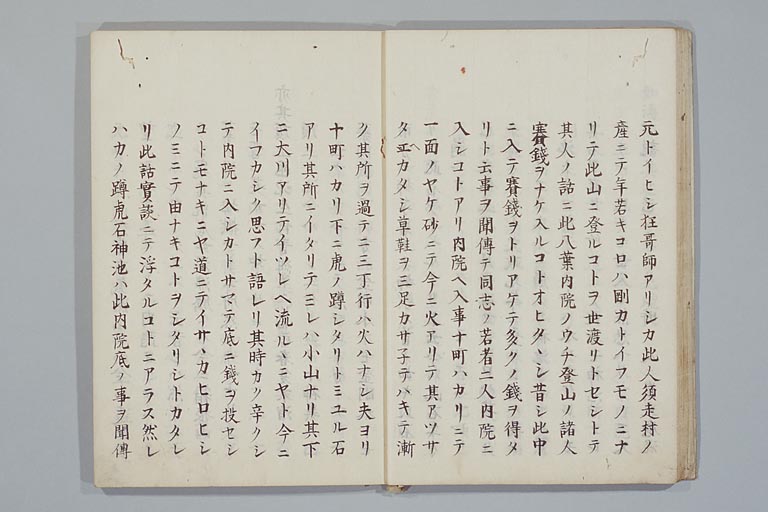 元トイヒシ狂哥師アリシカ此人須走村ノ
産ニテ年若キコロハ剛カトイフモノニナ
リテ此山ニ登ルコトヲ世渡リトセシトテ
其人ノ話ニ此八葉内院ノウチ登山ノ諸人
賽錢ヲナケ入ルコトオヒタヽシ昔シ此中
ニ入テ賽錢ヲトリアケテ多クノ錢ヲ得タ
リト云事ヲ聞傳テ同志ノ若者二人内院ニ
入シコトアリ内院ヘ入事十町ハカリニテ
一面ノヤケ砂ニテ今ニ火アリテ其アツサ
タエカタシ草鞋ヲ三足カサ子テハキテ漸
ク其所ヲ過テ二三丁行ハ火ハナシ夫ヨリ
十町ハカリ下ニ虎ノ蹲シタリトミユル石
アリ其所ニイタリテミレハ小山ナリ其下
ニ大川アリテイツレヘ流ルヽニヤト今ニ
イフカシク思フト語レリ其時カク辛クシ
テ内院ニ入シカトサマテ底ニ錢ヲ投セシ
コトモナキニヤ道ニテイサヽカヒロヒシ
ノミニテ由ナキコトヲシタリシトカタレ
リ此話實談ニテ浮タルコトニアラス然レ
ハカノ蹲虎石神池ハ此内院底ノ事ヲ聞傳